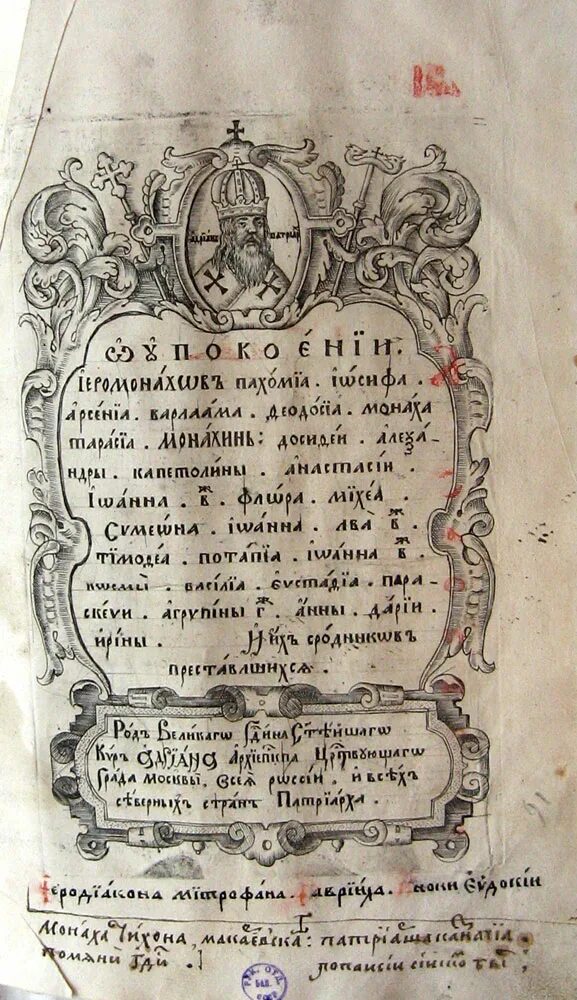 АДРIАНЪ ПАТРИАР
Ѡ УПОКОЕ́НIИ.
IЕРОМОНА́ХѠВЪ ПАХО́МIА . IѠ́СИФА .
А́РСЕ́НIА . ВАРЛАА́МА . ѲЕОДО́СIА . МОНА́ХА
ТАРА́СIА . МОНА́ХИНЬ: ДОСИѲЕ́И . АЛЕѮА́
НДРЫ . КАПЕТОЛИ́НЫ . А́НАСТАСÍИ .
IѠА́ННА . В҃ж . ФЛѠ́РА . МIХЕ́А .
СѴМЕѠ́НА . IѠА́ННА . ЛВА̀ В҃ж .
ТIМОѲЕА . ПОТА́ПIА . IѠА́ННА В҃ж .
КОСМЫ̀ . ВАСÍЛIА . ЕѴСТА́ѲIА . ПАРА-
СКЕ́VИ . А́ГРУПИ́НЫ Г҃ж . А́ННЫ . ДА́РIИ .
ИРИ́НЫ . И И́ХЪ СРО́ДНИКѠВЪ
ПРЕСТА́ВЛШИХСѦ .
РО́ДЪ ВЕЛИ́КАГѠ ГДⷭ҇И́НА СТ҃Ѣ́ЙШАГѠ
КѴ́РЪ АДРIА́НА АРХIЕПⷭ҇КПА ЦРⷭ҇ТВУЮЩАГѠ
ГРА́ДА МОСКВЫ̀, ВСЕѦ̀ РѠССÍИ, И ВСѢ́ХЪ
СѢ́ВЕРНЫХЪ СТРА́НЪ ПАТРIА́РХА .
Iеродїакона митрофана . Гаврїила . Иноки Еѵдокїи
Монаха Тихона,
помяни Гдⷭ҇и .